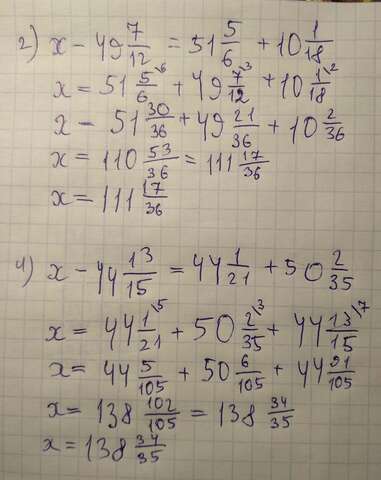 2) x - 49 7/12 = 51 5/6 + 10 1/18
x = 51 5/6 \6 + 49 7/12 \3 + 10 1/18 \2
x = 51 30/36 + 49 21/36 + 10 2/36
x = 110 53/36 = 111 17/36
x = 111 17/36
4) x - 44 13/15 = 44 1/21 + 50 2/35
x = 44 1/21 \5 + 50 2/35 \3 + 44 13/15 \7
x = 44 5/105 + 50 6/105 + 44 91/105
x = 138 102/105 = 138 34/35
x = 138 34/35